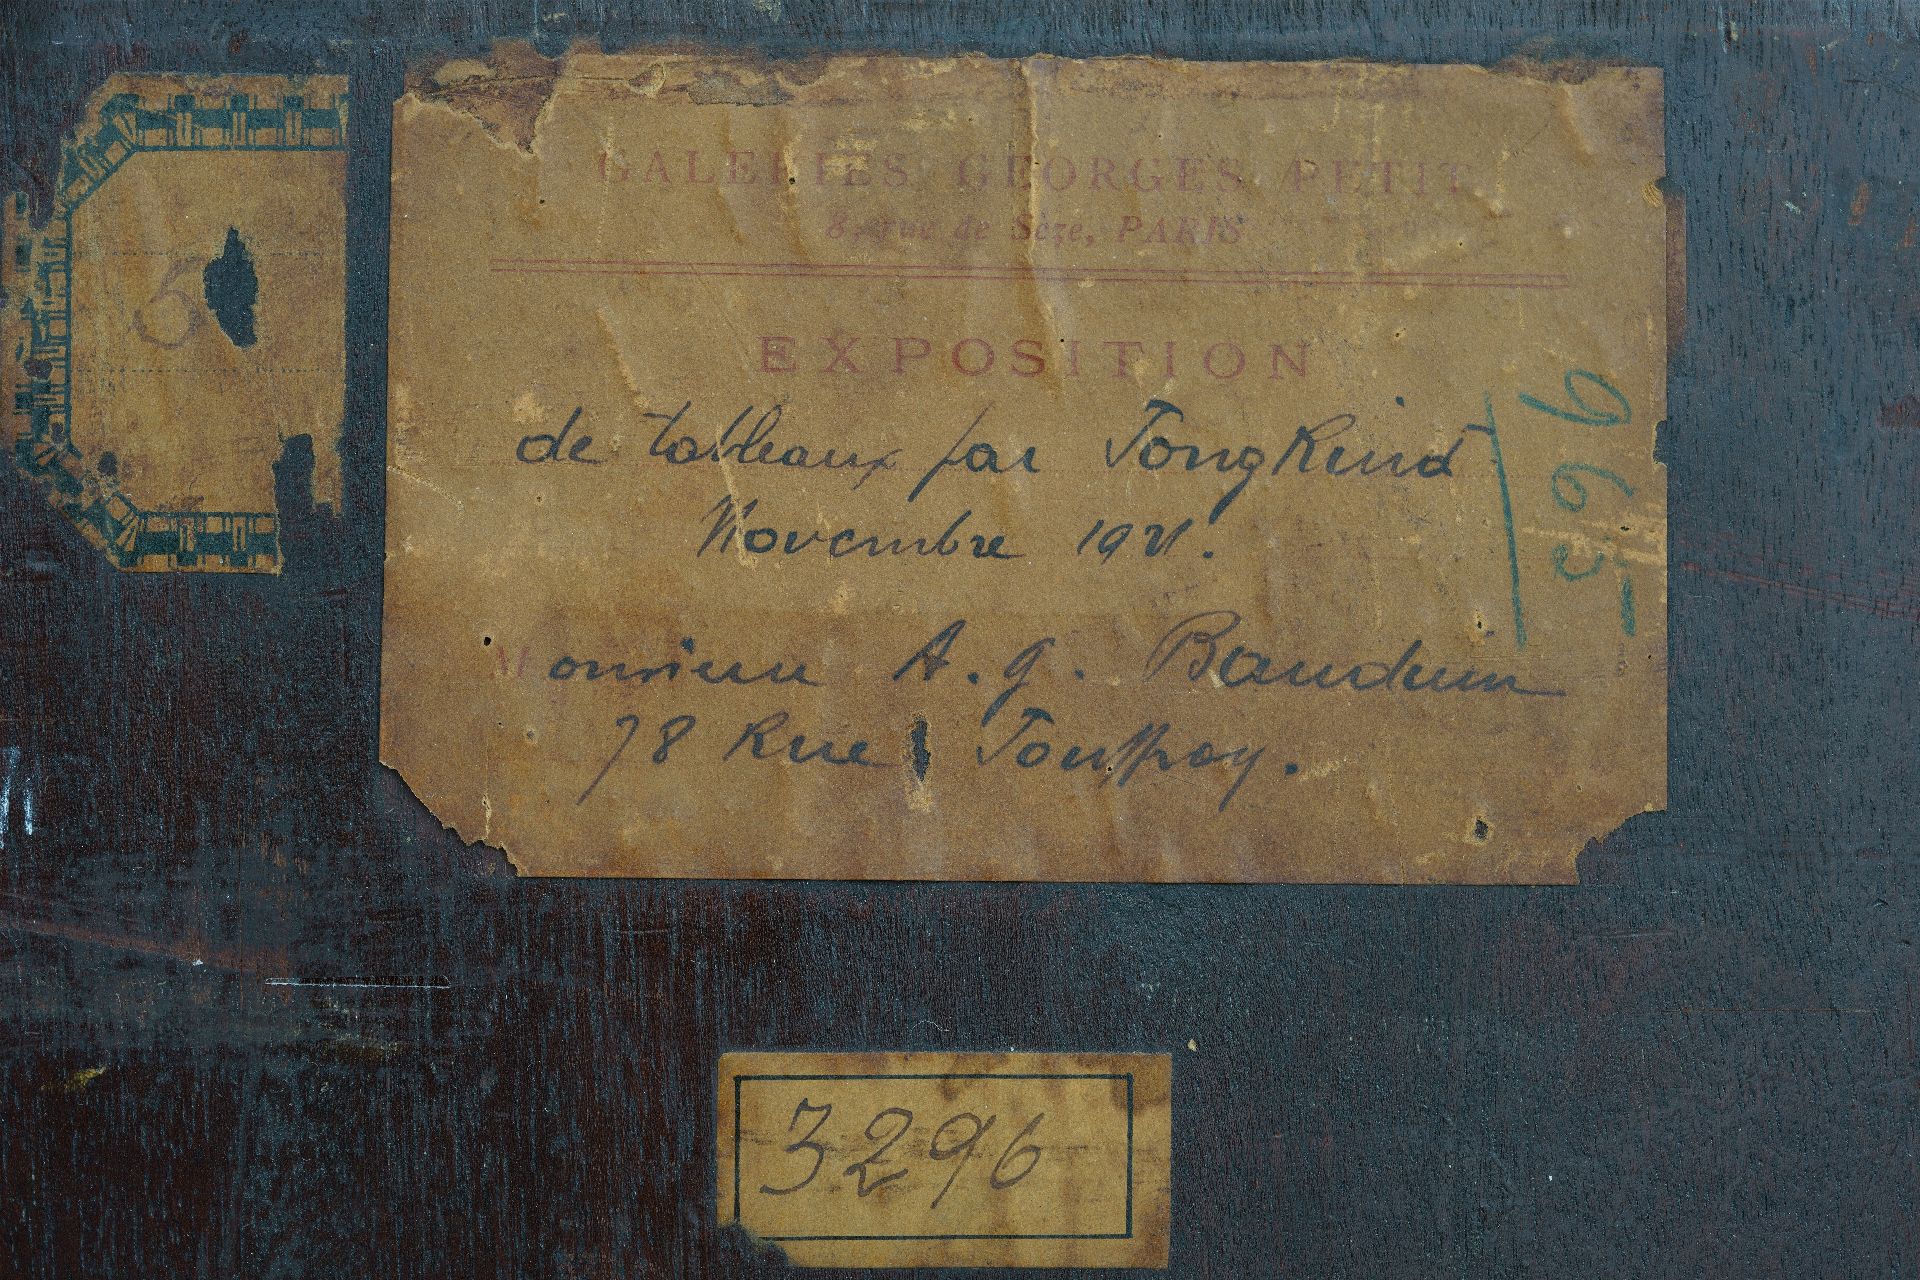 5
GALERIES GEORGES PETIT
8, rue de Sèze, PARIS
EXPOSITION
de tableaux par JongKind
Novembre 1921.
Monsieur A. g. Bauduin
78 Rue Jouffroy.
3296